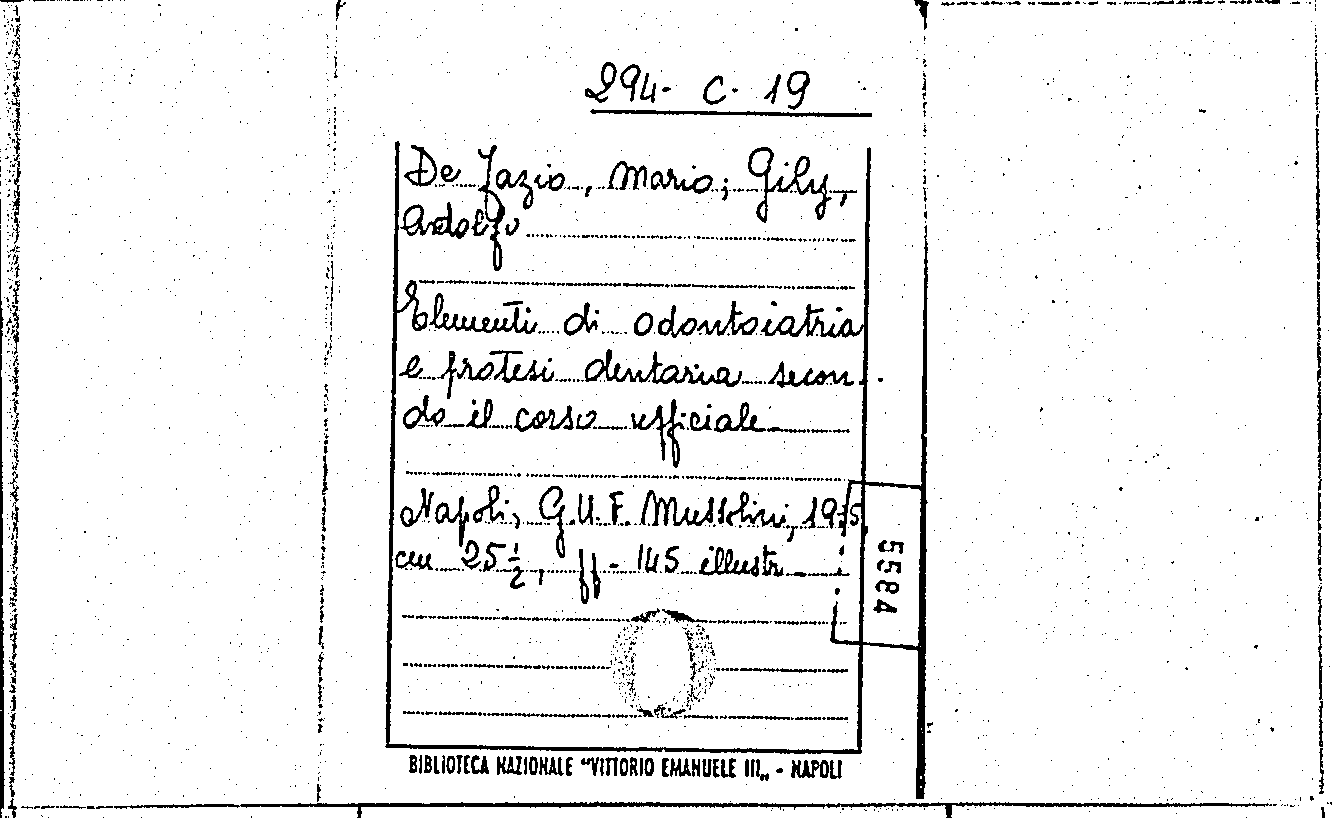 294. C. 19
De Fazio, Mario; Gily,
Adolfo
Elementi di odontoiatria
e protesi dentaria secon-
do il corso ufficiale
Napoli, G.U.F. Mussolini,
cm 25 1/2, ff. 145 illustr.
5584
BIBLIOTECA NAZIONALE "VITTORIO EMANUELE III„ - NAPOLI